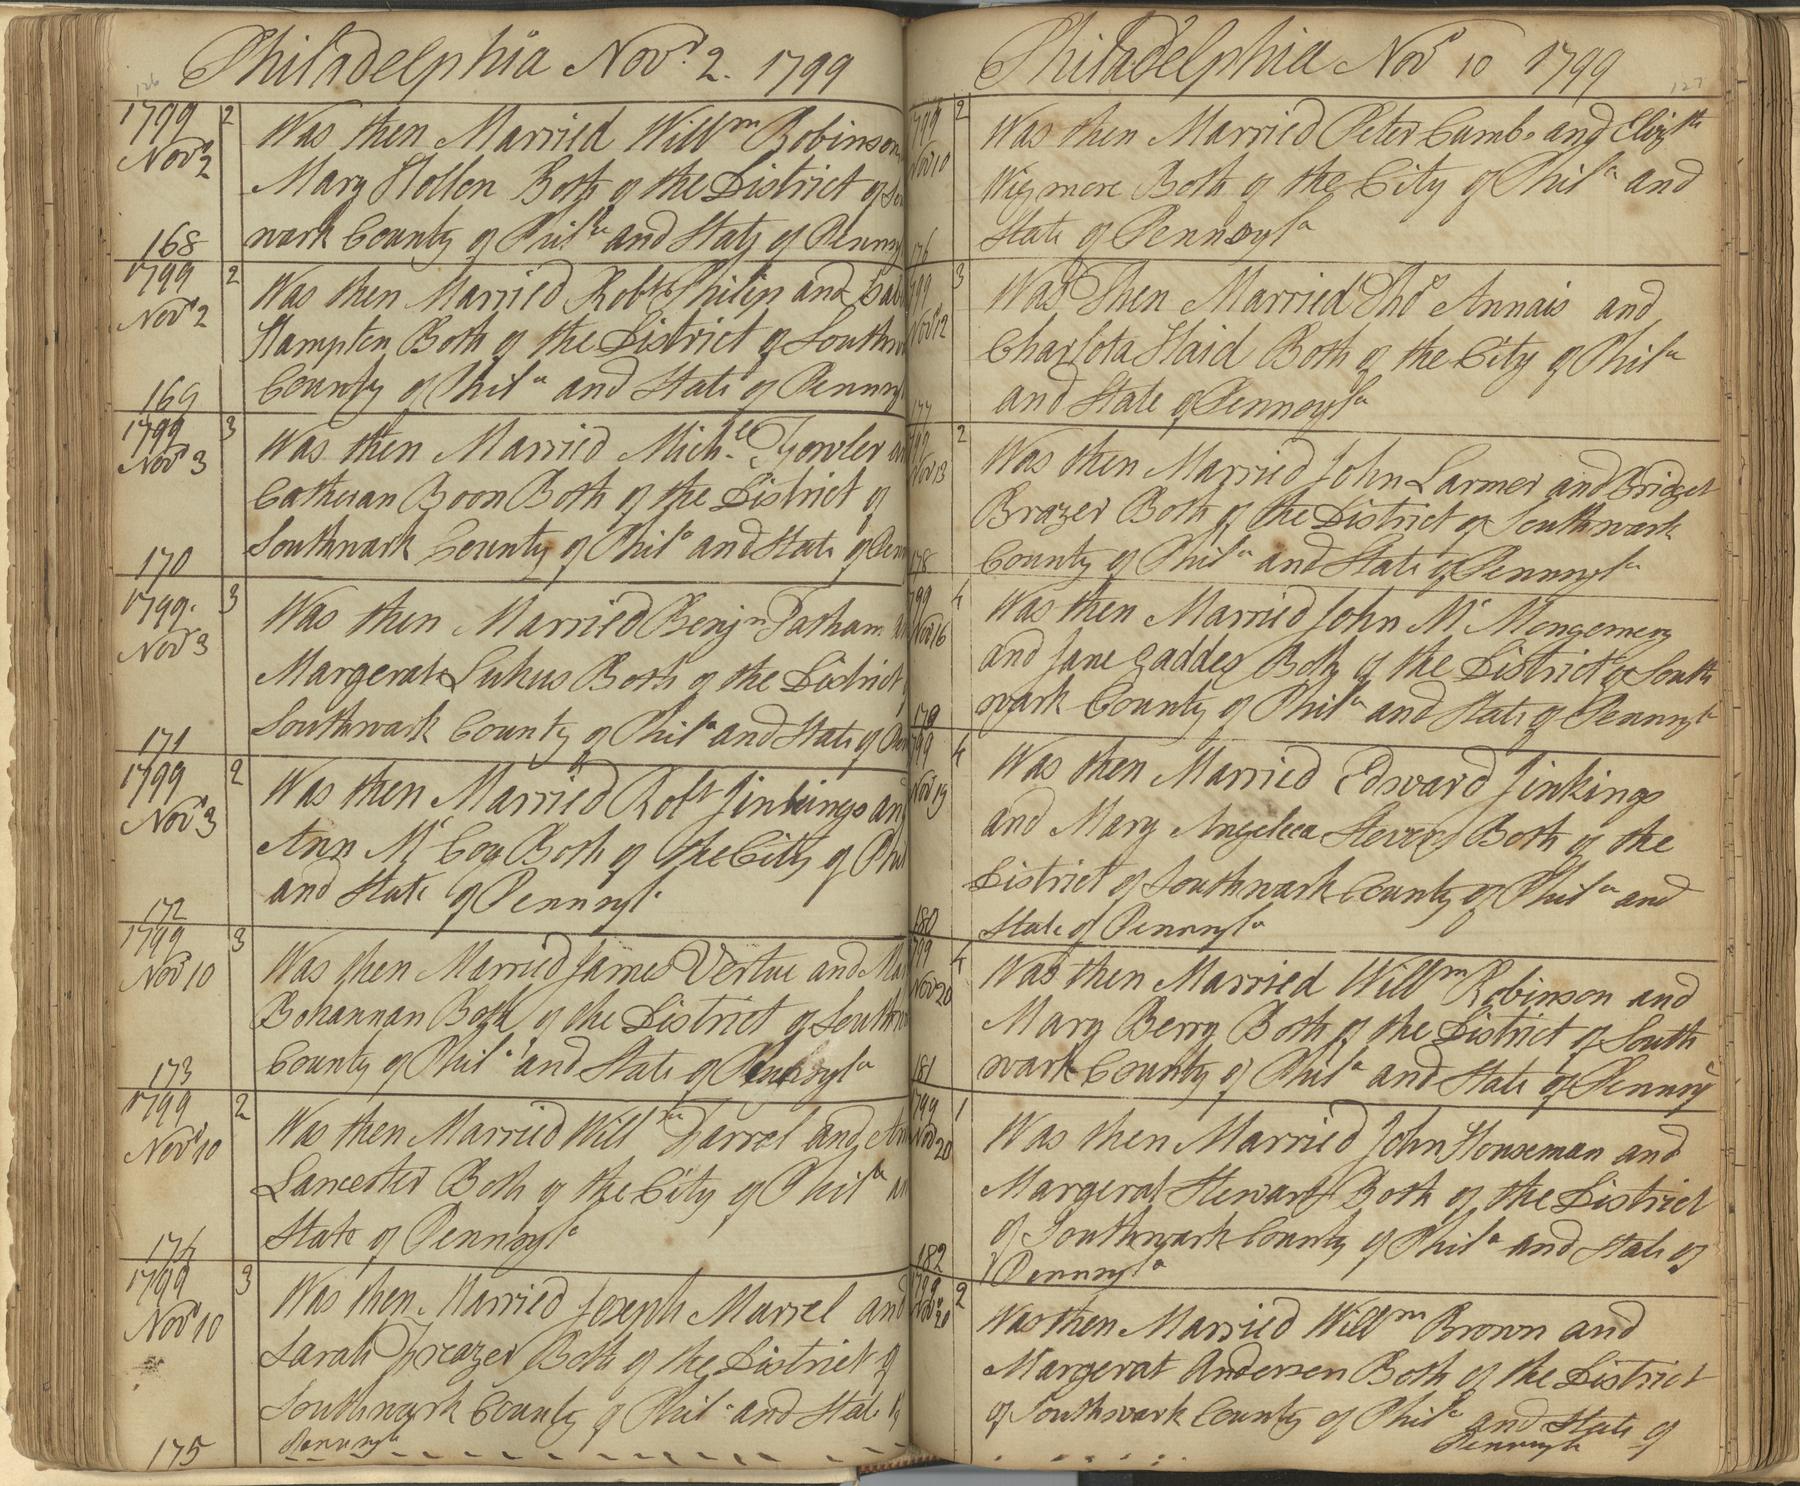 126
Philadelphia Novr. 2. 1799
1799 2
Novr 2
168
Was then Married Willm Robinson
Mary Hollen Both of the District of
wark County of Phila and State of Pennsy
1799 2
Novr 2
169
Was then Married Robt Philips and
Hampton Both of the District of Southw
County of Phila and State of Pennsy
1799 3
Novr 3
170
Was then Married Michl Fowler
Catheran Boon Both of the District of
Southwark County of Phila and State of Penn
1799. 3
Novr 3
171
Was then Married Benjn Tatham
Margerat Lukus Both of the District
Southwark County of Phila and State of
1799 2
Novr 3
172
Was then Married Robt Jinkings an
Ann Mc Coy Both of the City of Phil
and State of Pennsyl
1799 3
Novr 10
173
Was then Married James Vertue and Ma
Bohannan Both of the District of Southw
County of Phila and State of Pennsyla
1799 2
Novr 10
174
Was then Married Willm Farrel and An
Lancester Both of the City of Phila
State of Pennsyla
1799 3
Novr 10
175
Was then Married Joseph Marrel and
Sarah Frazer Both of the District of
Southwark County of Phila and State
Pennsyla
127
Philadelphia Novr 10 1799
1799 2
Novr 10
176
Was then Married Peter Cumbo and Elizth
Wigmore Both of the City of Phila and
State of Pennsyla
1799 3
Novr 12
177
Was Then Married Thos Annais and
Charlota Haid Both of the City of Phila
and State of Pennsyla
1799 2
Novr 13
178
Was then Married John Larmer and Bridget
Brazer Both of the District of Southwark
County of Phila and State of Pennsyla
1799 4
Novr 16
179
Was then Married John Mc Mongomery
and Jane Gaddes Both of the District of South
wark County of Phila and State of Pennsyla
1799 4
Novr 19
180
Was then Married Edward Jinkings
and Mary Angeleca Stevens Both of the
District of Southwark County of Phila and
State of Pennsyla
1799 4
Novr 20
181
Was then Married Willm Robinson and
Mary Berry Both of the District of South
wark County of Phila and State of Pennsy
1799 1
Novr 20
182
Was then Married John Houseman and
Margerat Stewart Both of the District
of Southwark County of Phila and State of
Pennsyla
1799 2
Novr 20
Was then Married Willm Brown and
Margerat Andersen Both of the District
of Southwark County of Phila and State of
Pennsyla